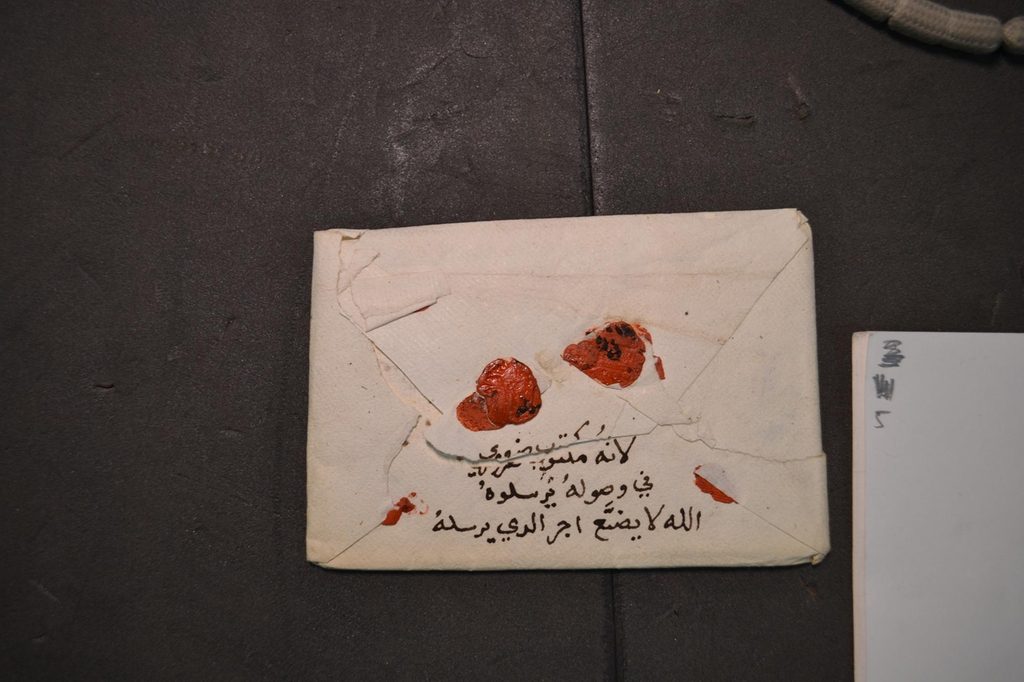 لانهُ مكتوب ضروري
في وصولهُ يُرسلوهُ
الله لا يضيَّع اجر الدي يرسلهُ